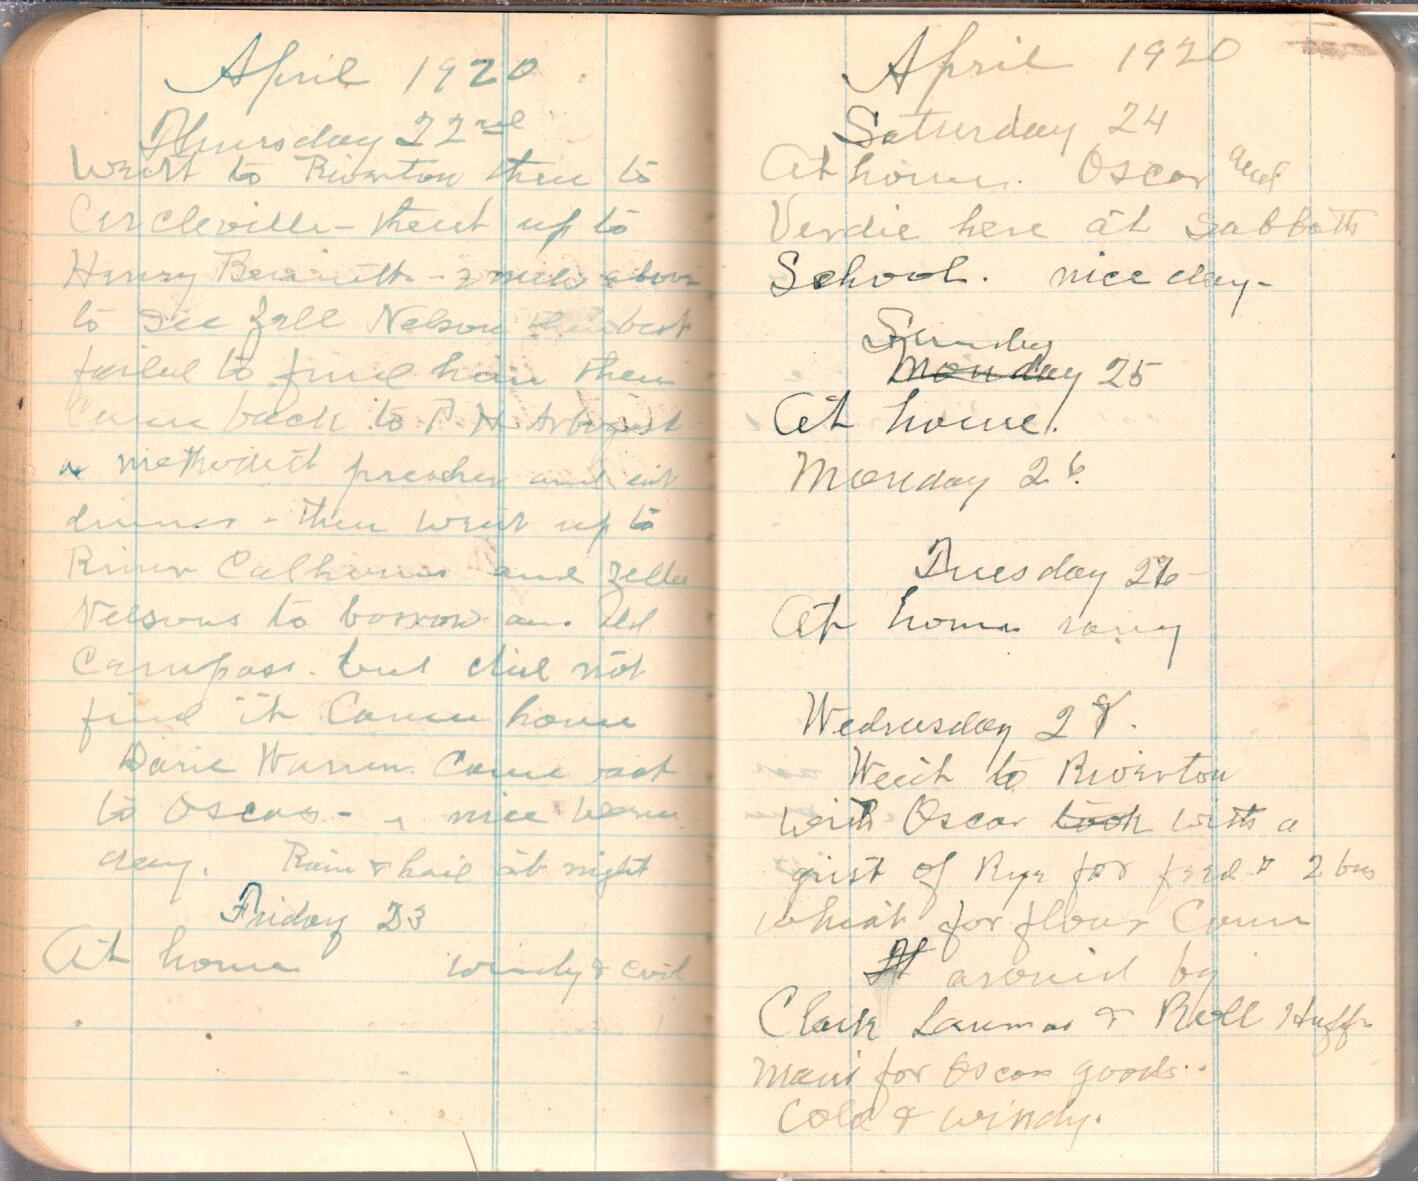 April 1920
Thursday 22nd
Went to Riverton then to
Circleville - thent up to
Henry Bennetts - 2 mile above
to see Zell Nelson but
failed to find him then
Came back to P. H. Arbogast
a methodist preacher and eat
dinner - then went up to
Calhouns and Zella
Nelsons to borrow an old
Campass. but did not
find it Came home
Warren Came out
to Oscars - a nice warm
day. Rain & hail at night
Friday 23
At home windy & cold
April 1920
Saturday 24
At home. Oscar and
Verdie here at Sabbath
School. nice day -
Sunday
Monday 25
At home.
Monday 26.
Tuesday 26
At home rainy
Wednesday 28.
Went to Riverton
with Oscar took with a
grist of Rye for feed & 2 bus
wheat for flour Came
around by
Clark & Huff
man for Oscar goods.
Cold & windy.